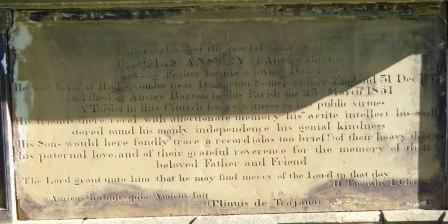 Here also rest the mortal remains of
ANSTEY of Anstey Barton
loving Father
He was born at near Dulverton Somersetshire England 31 Dec
and died at Anstey Barton in this Parish the 23 March 1851
A Tablet in this Church bears witness to his public virtues
His friends also record with affectionate memory his acute intellect his well
stored mind his manly independence his genial kindness
His Sons would here fondly trace a record (alas too brief) of their heavy debt
his paternal love, and of their grateful reverence for the memory of their
beloved Father and Friend
The Lord grant unto him that he may find mercy of the Lord in that day
II Timothy I Chap
Amicus
(Plinuis de Trajano)